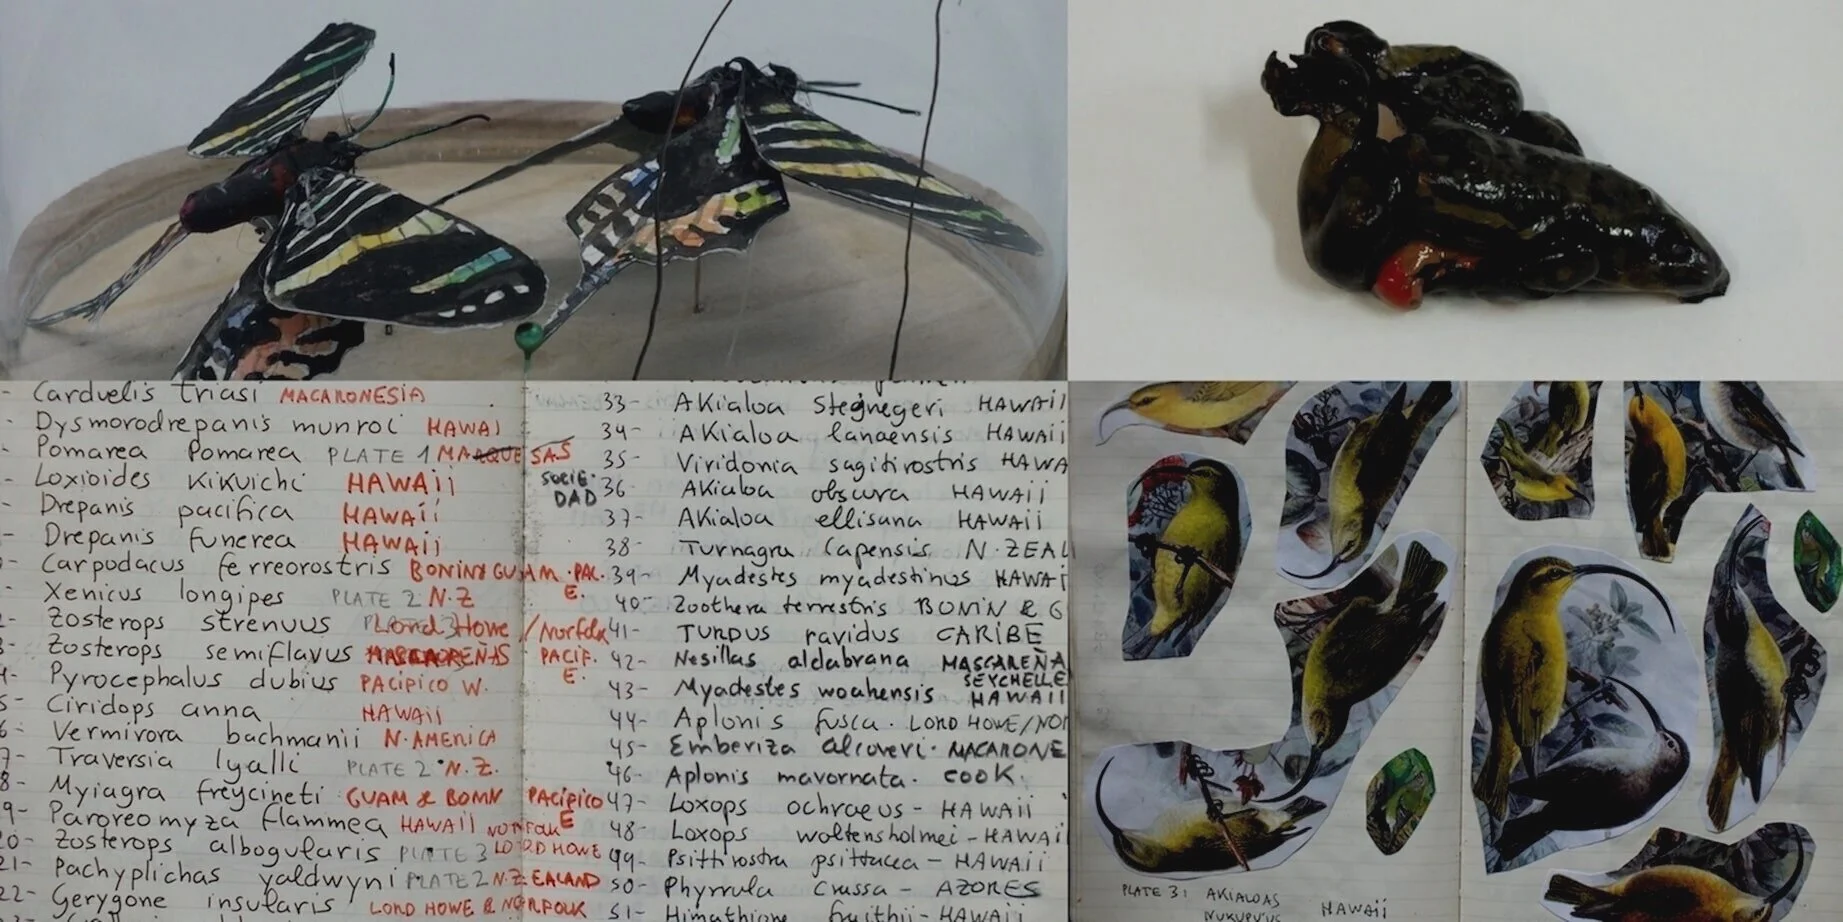 Carduelis triasi MACARONESIA
Dysmorodrepanis munroi HAWAI
Pomarea Pomarea PLATE 1 MARQUESAS
SOCIE-
DAD
Loxioides Kikuichi HAWAII
Drepanis pacifica HAWAII
Drepanis funerea HAWAII
Carpodacus ferreorostris BONIN & GUAM · PAC.
E.
Xenicus longipes PLATE 2 N.Z
Zosterops strenuus PLATE 3 Lord Howe / Norfolk
Zosterops semiflavus MASCAREÑAS PACIF.
E.
Pyrocephalus dubius PACIPICO W.
Ciridops anna HAWAII
Vermivora bachmanii N. AMERICA
Traversia lyalli PLATE 2 N.Z.
Myiagra freycineti GUAM & BONIN PACIPICO
E
Paroreomyza flammea HAWAII
20- Zosterops albogularis PLATE 3 NORFOLK
LORD HOWE
21- Pachyplichas yaldwyni PLATE 2 N.ZEALAND
22- Gerygone insularis LORD HOWE & NORFOLK
33- AKialoa Stegnegeri HAWAII
34- AKialoa lanaensis HAWAII
35- Viridonia sagitirostris HAWA
36 AKialoa obscura HAWAII
37- AKialoa ellisana HAWAII
38- Turnagra Capensis N. ZEAL
39- Myadestes myadestinus HAWAI
40- Zoothera terrestris BONIN & G
41- TURDUS ravidus CARIBE
42- Nesillas aldabrana MASCAREÑA
SEYCHELLE
43- Myadestes woahensis HAWAII
44- Aplonis fusca. LORD HOWE/NOR
45- Emberiza alcoveri. MACARONE
46- Aplonis mavornata. COOK.
47- Loxops ochraeus - HAWAII
48- Loxops woltensholmei - HAWAII
49- Psittirostra psittacea - HAWAII
50- Phyrrula crassa - AZORES
51- Himathione fruithii - HAWAII
PLATE 3: AKIALOAS
NUKUPU'US HAWAII